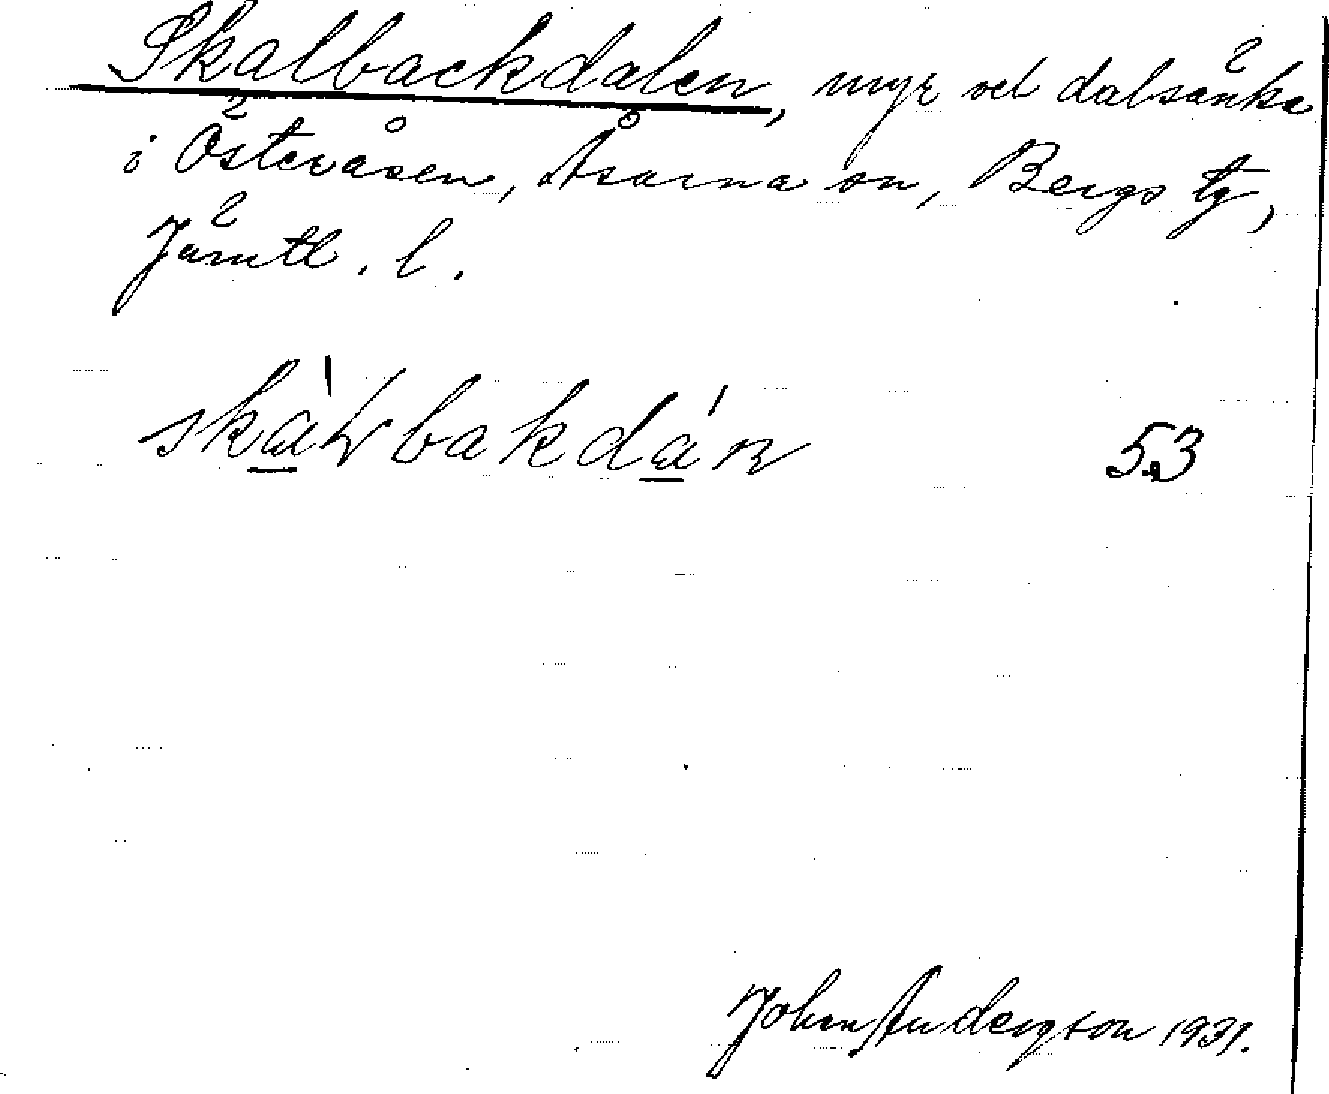 Skalbackdalen, myr och dalsänka
i Österåsen, Åsarna sn, Bergs tg,
Jämtl. l.
skàɽbakdáɴ 53
John Anderson 1931.